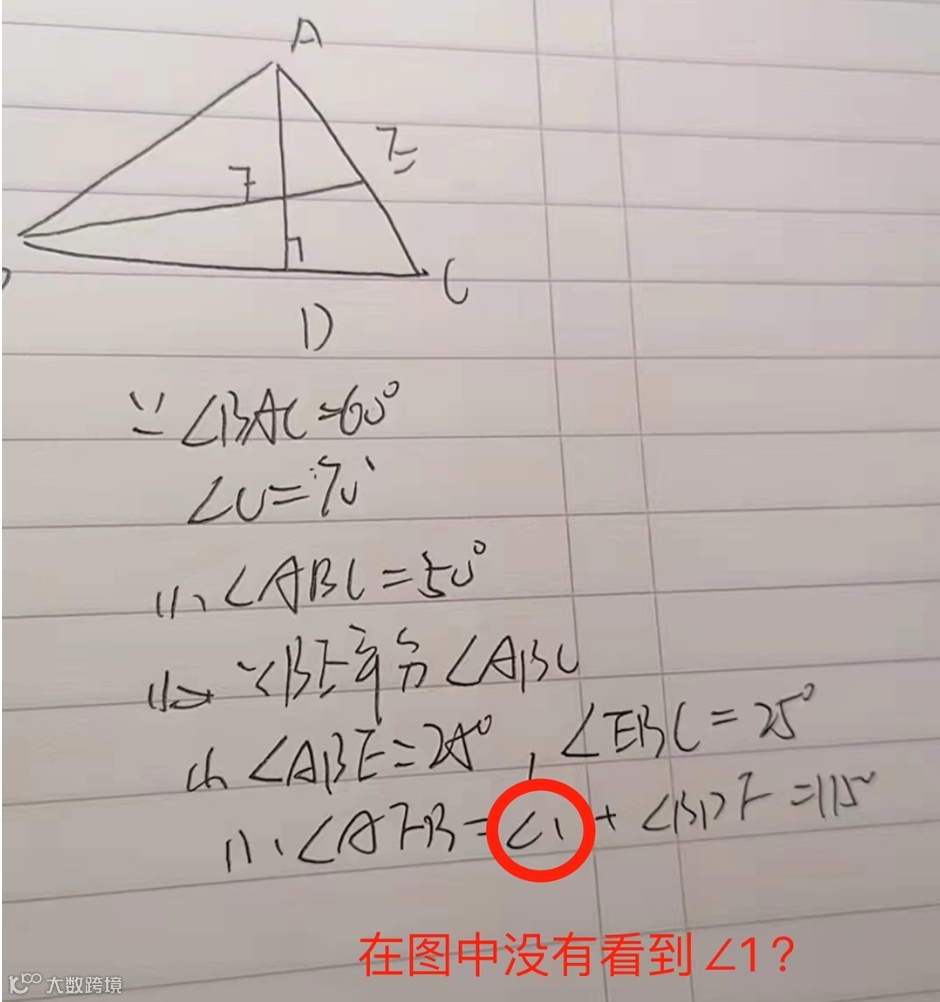 A
E
F
C
D
∵ ∠BAC=60°
∠C=70°
∴ ∠ABC=50°
∵BE平分∠ABC
∴ ∠ABE=25°, ∠EBC=25°
∴ ∠AFB=∠1+∠BDF=115°
在图中没有看到∠1？
大数跨境